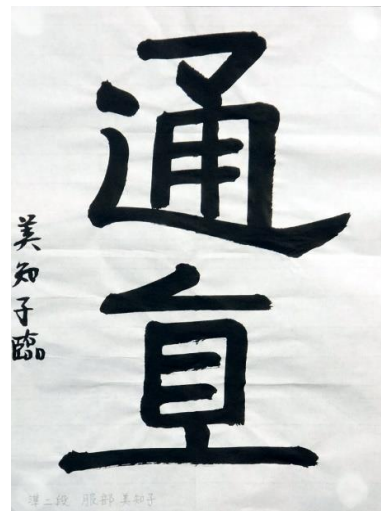 通直
美知子臨
準二段 服部美知子